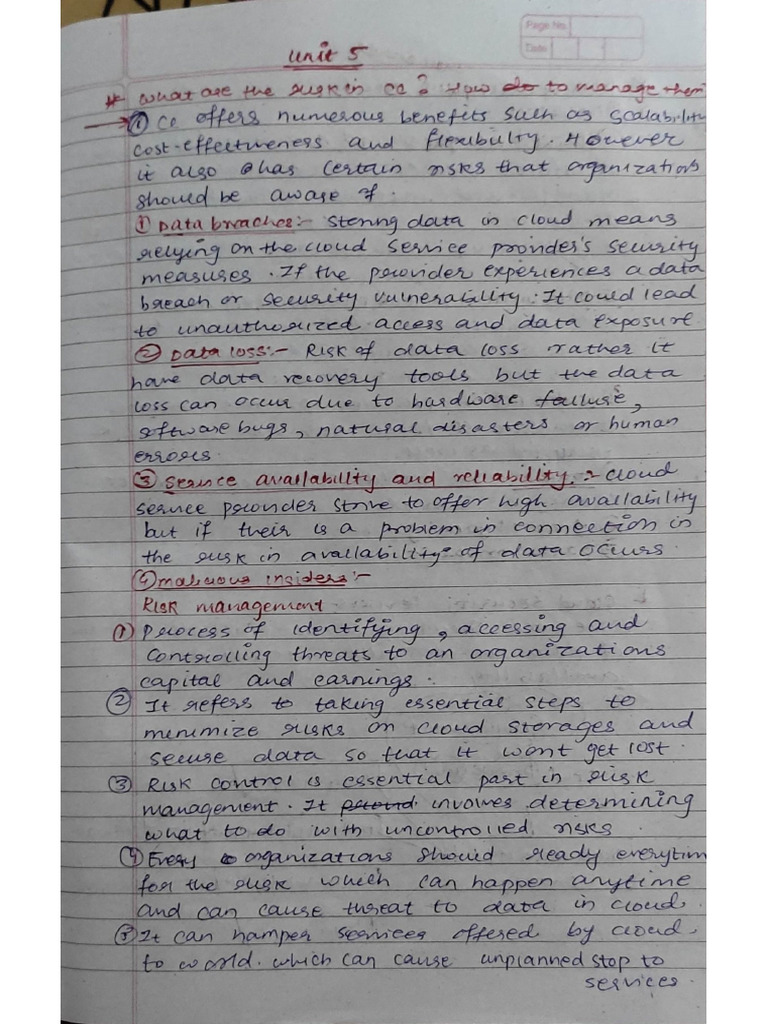 Page No.
Date
Unit 5
* What are the risk in CC? How do to manage them
→ ① CC offers numerous benefits such as scalability
cost-effectiveness and flexibility. However
it also has certain risks that organization
should be aware of.
① Data breaches:- Storing data in cloud means
relying on the cloud service provider's security
measures. If the provider experiences a data
breach or security vulnerability. It could lead
to unauthorized access and data exposure
② Data loss:- Risk of data loss rather it
have data recovery tools but the data
loss can occur due to hardware failure,
software bugs, natural disasters or human
errors.
③ Service availability and reliability :- cloud
service provider strive to offer high availability
but if their is a problem in connection in
the risk in availability of data occurs.
④ malicious insiders:-
Risk management
① Process of identifying, accessing and
controlling threats to an organizations
capital and earnings.
② It refers to taking essential steps to
minimize risks on cloud storages and
secure data so that it wont get lost.
③ Risk control is essential part in risk
management. It involves determining
what to do with uncontrolled risks
④ Every organizations should ready everytim
for the risk which can happen anytime
and can cause threat to data in cloud.
⑤ It can hamper services offered by cloud
to world. which can cause unplanned stop to
services.